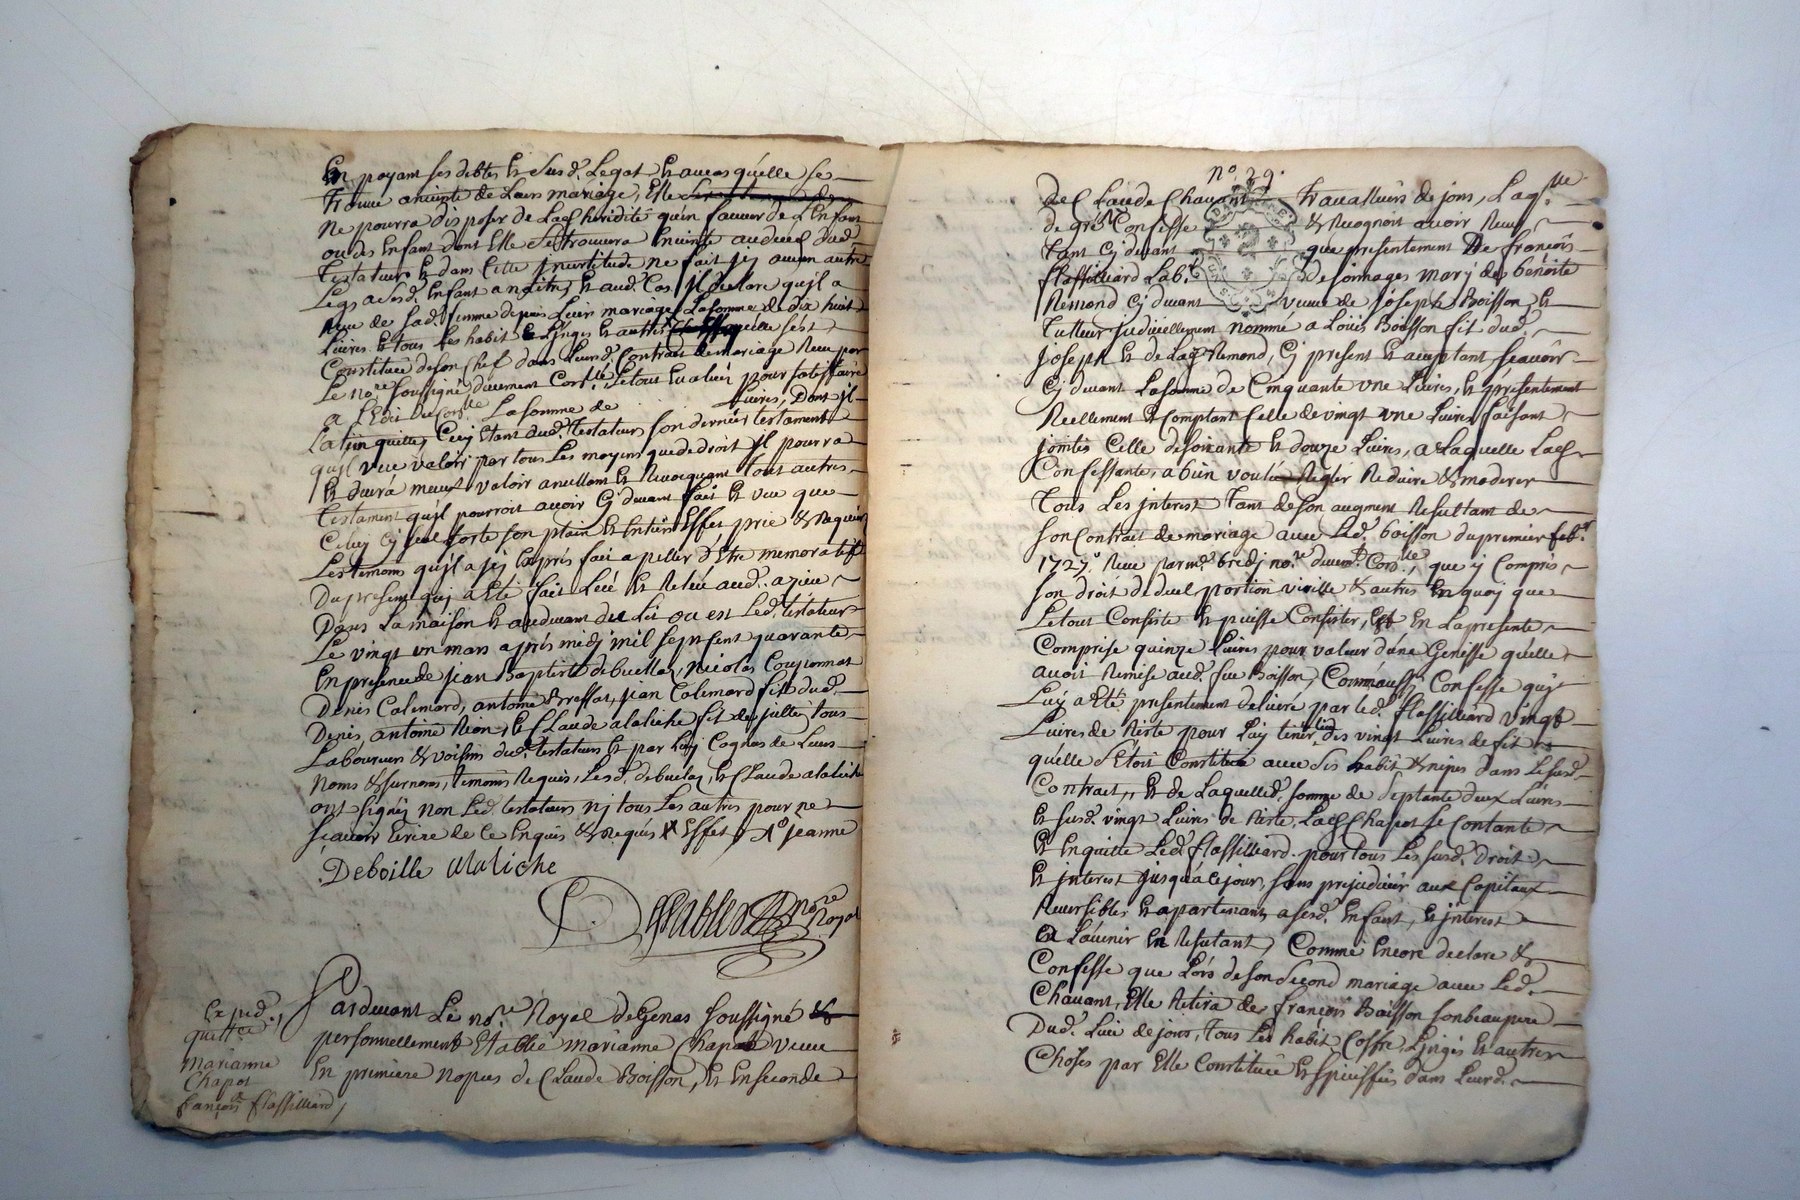 En payant ses debtes Et susd. Legat Et aucas qu'elle se
trouue aninte de Leurs mariage, Elle
Ne pourra disposer de Lad. heridité qu'en faueur de L'Enfant
ou des Enfant dont Elle se trouuera Enceinte audeced dud.
Testateur Et dans Cette jncertitude ne fait jcy aucun autre
Legs a sesd. Enfant anaitre, Et aud. Cas jl declare qu'il a
Reçu de sad. femme depuis Leurs mariage La somme de dix huit
Liures Et tous Les habit Linges Et autres quelle s'est
Constituée de son Chef dans Leurd. Contract de mariage Receu par
Le nore. soussigné duement Corllé. Le tout Eualué pour satisffaire
a L'Edit du Corlle La somme de Liures, Dont jl
La tien quitte, Cecy Etant dud. testateur son dernier testament
qu'jl veu valoir par tous Les moyens que de droit jl pourra
Et deura meux valoir anullant Et Reuocquant tout autres
Testament qu'jl pourroit auoir Cy deuant fait Et veu que
Celuy Cy seul sorte son plain Et Entier Effet prie & Requier
Les temoins qu'jl a jcy Exprés fait apeller d'Etre memoratif
Du present quj a Eté fait Leu Et Releu aud. azieu
Dans La maison Et audeuant du Lit ou est Led. testateur
Le vingt un mars aprés midj mil sept Cent quarante
En presence de jean Baptiste debuellas, Nicolas Couponnat
Denis Calemard, antoine Brossat, jean Calemard fit dud.
Denis, antoine Rion, Et Claude alaliche fit de jullien tous
Laboureur & voisins dud. testateur Et par Luy Cognos de Leurs
Noms & surnoms, temoins Requis, Lesd. debuelas, Et Claude alaliche
ont signéj non Led. testateur nj tous Les autres pour ne
sçauoir Ecrire de Ce Enquis & Requis Effet
Deboille alaliche
nore Royal
Pardeuant Le nore Royal de Genas soussigné &
personnellement Etablie marianne Chapot veuue
En premiere nopces de Claude Boisson, Et En seconde
Exped.
quittce
Marianne
Chapot
françois flassilliard
no. 29.
de Claude Chauant trauallieur de jons, Laqlle
de gré Confesse & Recognoit auoir Receu
Tant Cy deuant que presentement De françois
flassilliard Labr. de jonnages mary de benoite
Remond Cy deuant veuue de Joseph Boisson, Et
Tutteur judiciellement nommé a Loüis Boisson fit dud.
Joseph Et de Lad. Remond, Cy present Et aceptant sçauoir
Cy deuant La somme de Cinquante vne Liures, Et presentement
Reellement Et Comptant Celle de vingt vne Liures faisant
jointes Celle de soixante Et douze Liures, a Laquelle Lad.
Confessante, a bien voulu Regler Reduire & moderer
Tous Les jnterest Tant de son augment Resultant de
son Contrat de mariage auec Led. boisson du premier feb.
1727. Receu par me. bredj nore. duemt. Corllé., que y Compris
son droit de duel portion virille & autres En quoj que
Le tout Consiste Et puisse Consister, Et En La presente
Comprise quinze Liures pour valeur d'une Genisse qu'elle
auoit Remise aud. feu Boisson, Comm'aussj Confesse quj
Luy a Eté presentement deliuré par Led. flassilliard vingt
Liures de Reste pour Luy tenir Lieu des vingt Liures de fit
qu'elle s'Etoit Constituée auec ses habit & nipes dans Le susd.
Contrait,, Et de Laquelled. somme de septante deux Liures
Et susd. vingt Liures de Reste Lad. Chapot se Contante
Et En quitte Led. flassilliard. pour tous Les susd. Droit
Et jnterest jusqu'a Ce jour, sans prejudicier aux Capitaux
Reuersibles Et apartenant a sesd. Enfant, Et jnterest
a L'auenir En Resultant, Comme Encore declare &
Confesse que Lors de son second mariage auec Led.
Chauant, Elle Retira de françois Boisson son beaupere
Dud. Lieu de jons, tous Les habit, Coffre, Linges Et autres
Choses par Elle Constituée Et specifiées dans Leurd.